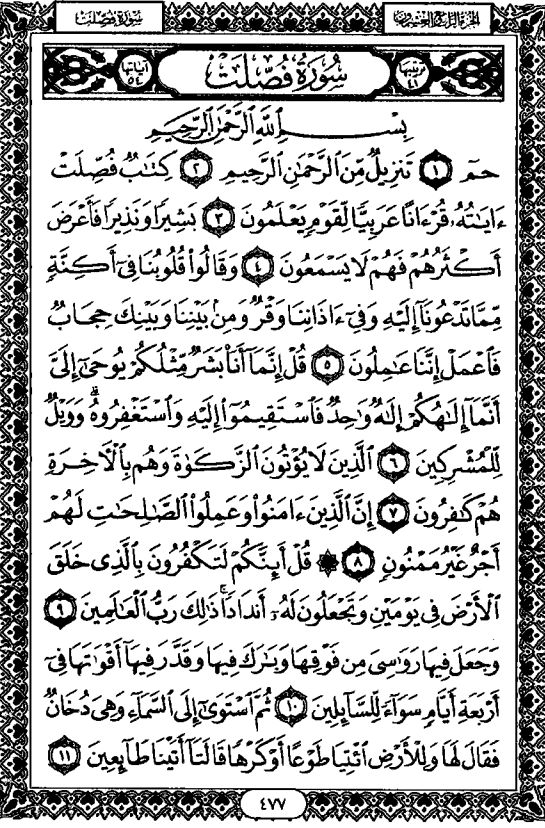 سورة فصلت
الجزء الرابع والعشرون
ترتيبها ٤١
سُورَةُ فُصِّلَتْ
آياتها ٥٤
بِسْمِ ٱللَّهِ ٱلرَّحْمَٰنِ ٱلرَّحِيمِ
حمٓ ١ تَنزِيلٌ مِّنَ ٱلرَّحْمَٰنِ ٱلرَّحِيمِ ٢ كِتَٰبٌ فُصِّلَتْ
ءَايَٰتُهُۥ قُرْءَانًا عَرَبِيًّا لِّقَوْمٍ يَعْلَمُونَ ٣ بَشِيرًا وَنَذِيرًا فَأَعْرَضَ
أَكْثَرُهُمْ فَهُمْ لَا يَسْمَعُونَ ٤ وَقَالُوا۟ قُلُوبُنَا فِىٓ أَكِنَّةٍ
مِّمَّا تَدْعُونَآ إِلَيْهِ وَفِىٓ ءَاذَانِنَا وَقْرٌ وَمِنۢ بَيْنِنَا وَبَيْنِكَ حِجَابٌ
فَٱعْمَلْ إِنَّنَا عَٰمِلُونَ ٥ قُلْ إِنَّمَآ أَنَا۠ بَشَرٌ مِّثْلُكُمْ يُوحَىٰٓ إِلَىَّ
أَنَّمَآ إِلَٰهُكُمْ إِلَٰهٌ وَٰحِدٌ فَٱسْتَقِيمُوٓا۟ إِلَيْهِ وَٱسْتَغْفِرُوهُ ۗ وَوَيْلٌ
لِّلْمُشْرِكِينَ ٦ ٱلَّذِينَ لَا يُؤْتُونَ ٱلزَّكَوٰةَ وَهُم بِٱلْءَاخِرَةِ
هُمْ كَٰفِرُونَ ٧ إِنَّ ٱلَّذِينَ ءَامَنُوا۟ وَعَمِلُوا۟ ٱلصَّٰلِحَٰتِ لَهُمْ
أَجْرٌ غَيْرُ مَمْنُونٍ ٨ ۞ قُلْ أَئِنَّكُمْ لَتَكْفُرُونَ بِٱلَّذِى خَلَقَ
ٱلْأَرْضَ فِى يَوْمَيْنِ وَتَجْعَلُونَ لَهُۥٓ أَندَادًا ۚ ذَٰلِكَ رَبُّ ٱلْعَٰلَمِينَ ٩
وَجَعَلَ فِيهَا رَوَٰسِىَ مِن فَوْقِهَا وَبَٰرَكَ فِيهَا وَقَدَّرَ فِيهَآ أَقْوَٰتَهَا فِىٓ
أَرْبَعَةِ أَيَّامٍ سَوَآءً لِّلسَّآئِلِينَ ١٠ ثُمَّ ٱسْتَوَىٰٓ إِلَى ٱلسَّمَآءِ وَهِىَ دُخَانٌ
فَقَالَ لَهَا وَلِلْأَرْضِ ٱئْتِيَا طَوْعًا أَوْ كَرْهًا قَالَتَآ أَتَيْنَا طَآئِعِينَ ١١
٤٧٧